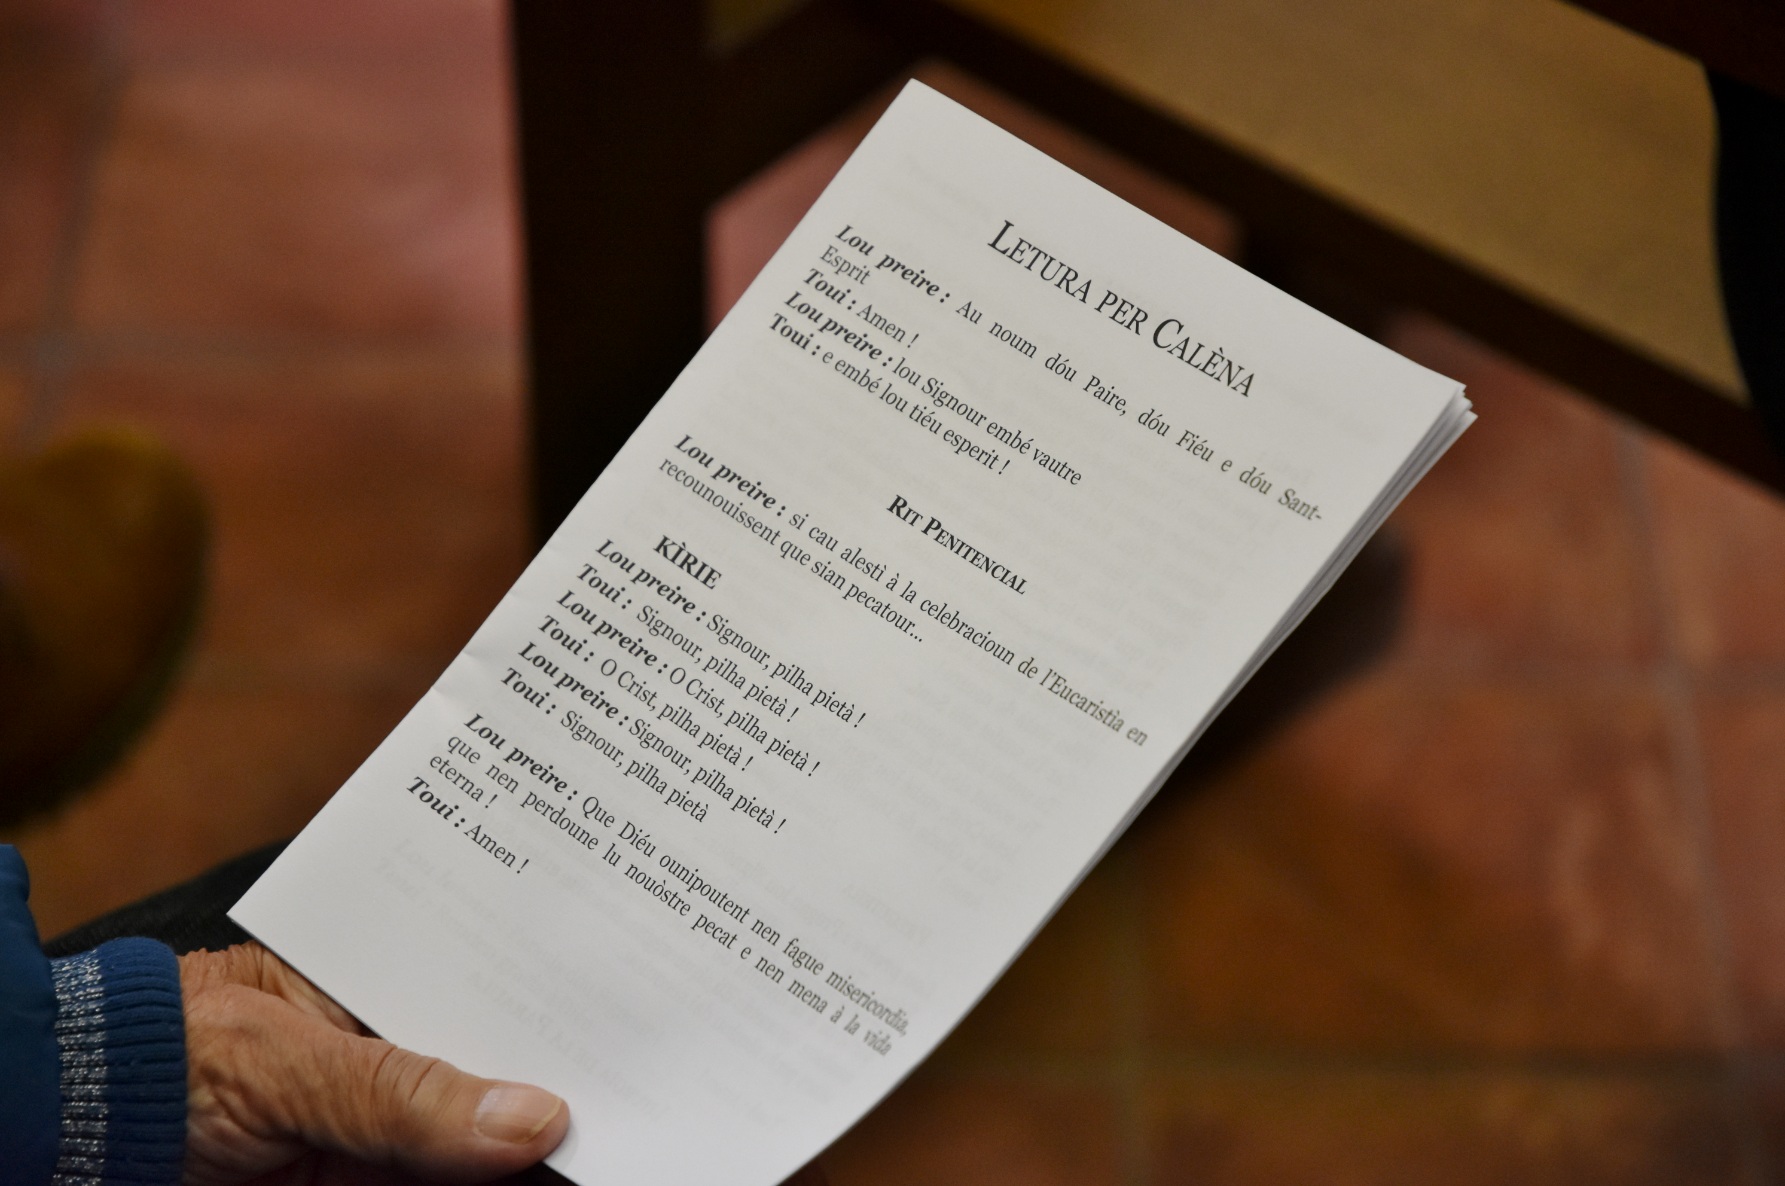 LETURA PER CALÈNA
Lou preire : Au noum dóu Paire, dóu Fiéu e dóu Sant-
Esprit
Toui : Amen !
Lou preire : lou Signour embé vautre
Toui : e embé lou tiéu esperit !
RIT PENITENCIAL
Lou preire : si cau alestì à la celebracioun de l'Eucaristìa en
recounouissent que sian pecatour...
KÌRIE
Lou preire : Signour, pilha pietà !
Toui : Signour, pilha pietà !
Lou preire : O Crist, pilha pietà !
Toui : O Crist, pilha pietà !
Lou preire : Signour, pilha pietà !
Toui : Signour, pilha pietà
Lou preire : Que Diéu ounipoutent nen fague misericordia,
que nen perdoune lu nouòstre pecat e nen mena à la vida
eterna !
Toui : Amen !